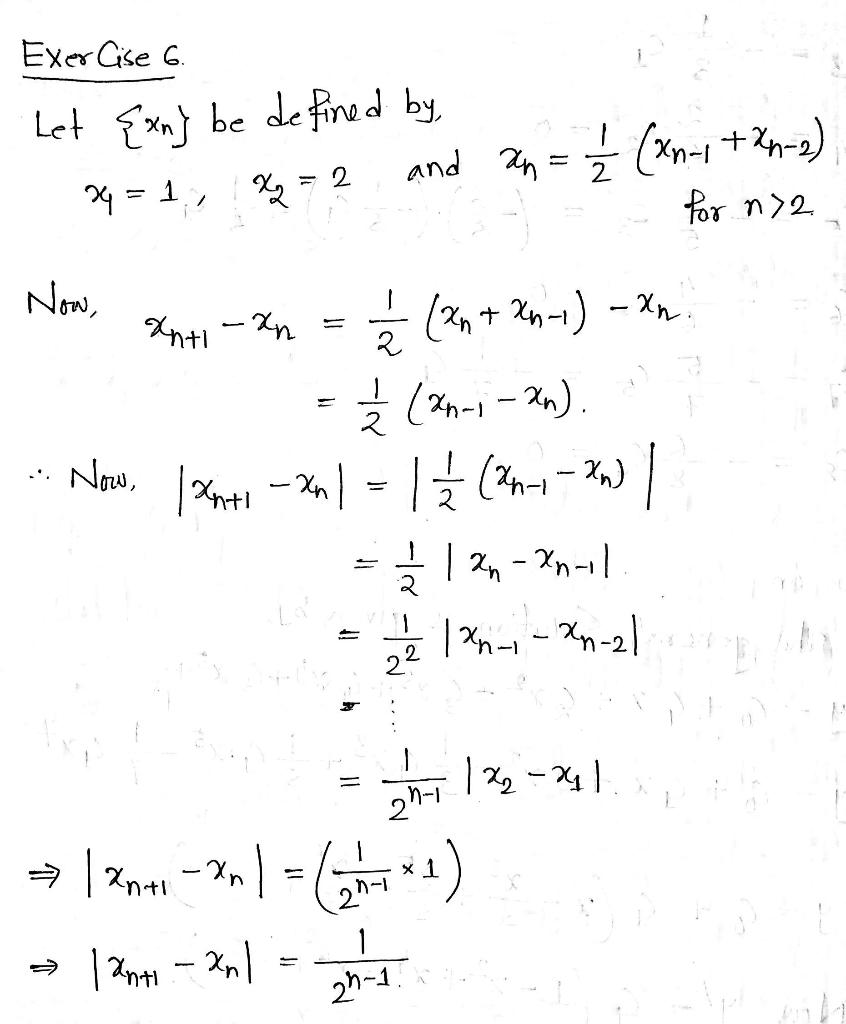 Exercise 6.
Let {xn} be defined by,
x₁ = 1, x₂ = 2 and xₙ = 1/2 (xₙ₋₁ + xₙ₋₂)
for n>2
Now, xₙ₊₁ − xₙ = 1/2 (xₙ + xₙ₋₁) − xₙ.
= 1/2 (xₙ₋₁ − xₙ).
∴ Now, |xₙ₊₁ − xₙ| = |1/2 (xₙ₋₁ − xₙ)|
= 1/2 |xₙ − xₙ₋₁|
= 1/2² |xₙ₋₁ − xₙ₋₂|
⋮
= 1/2ⁿ⁻¹ |x₂ − x₁|.
⇒ |xₙ₊₁ − xₙ| = (1/2ⁿ⁻¹ × 1)
⇒ |xₙ₊₁ − xₙ| = 1/2ⁿ⁻¹.